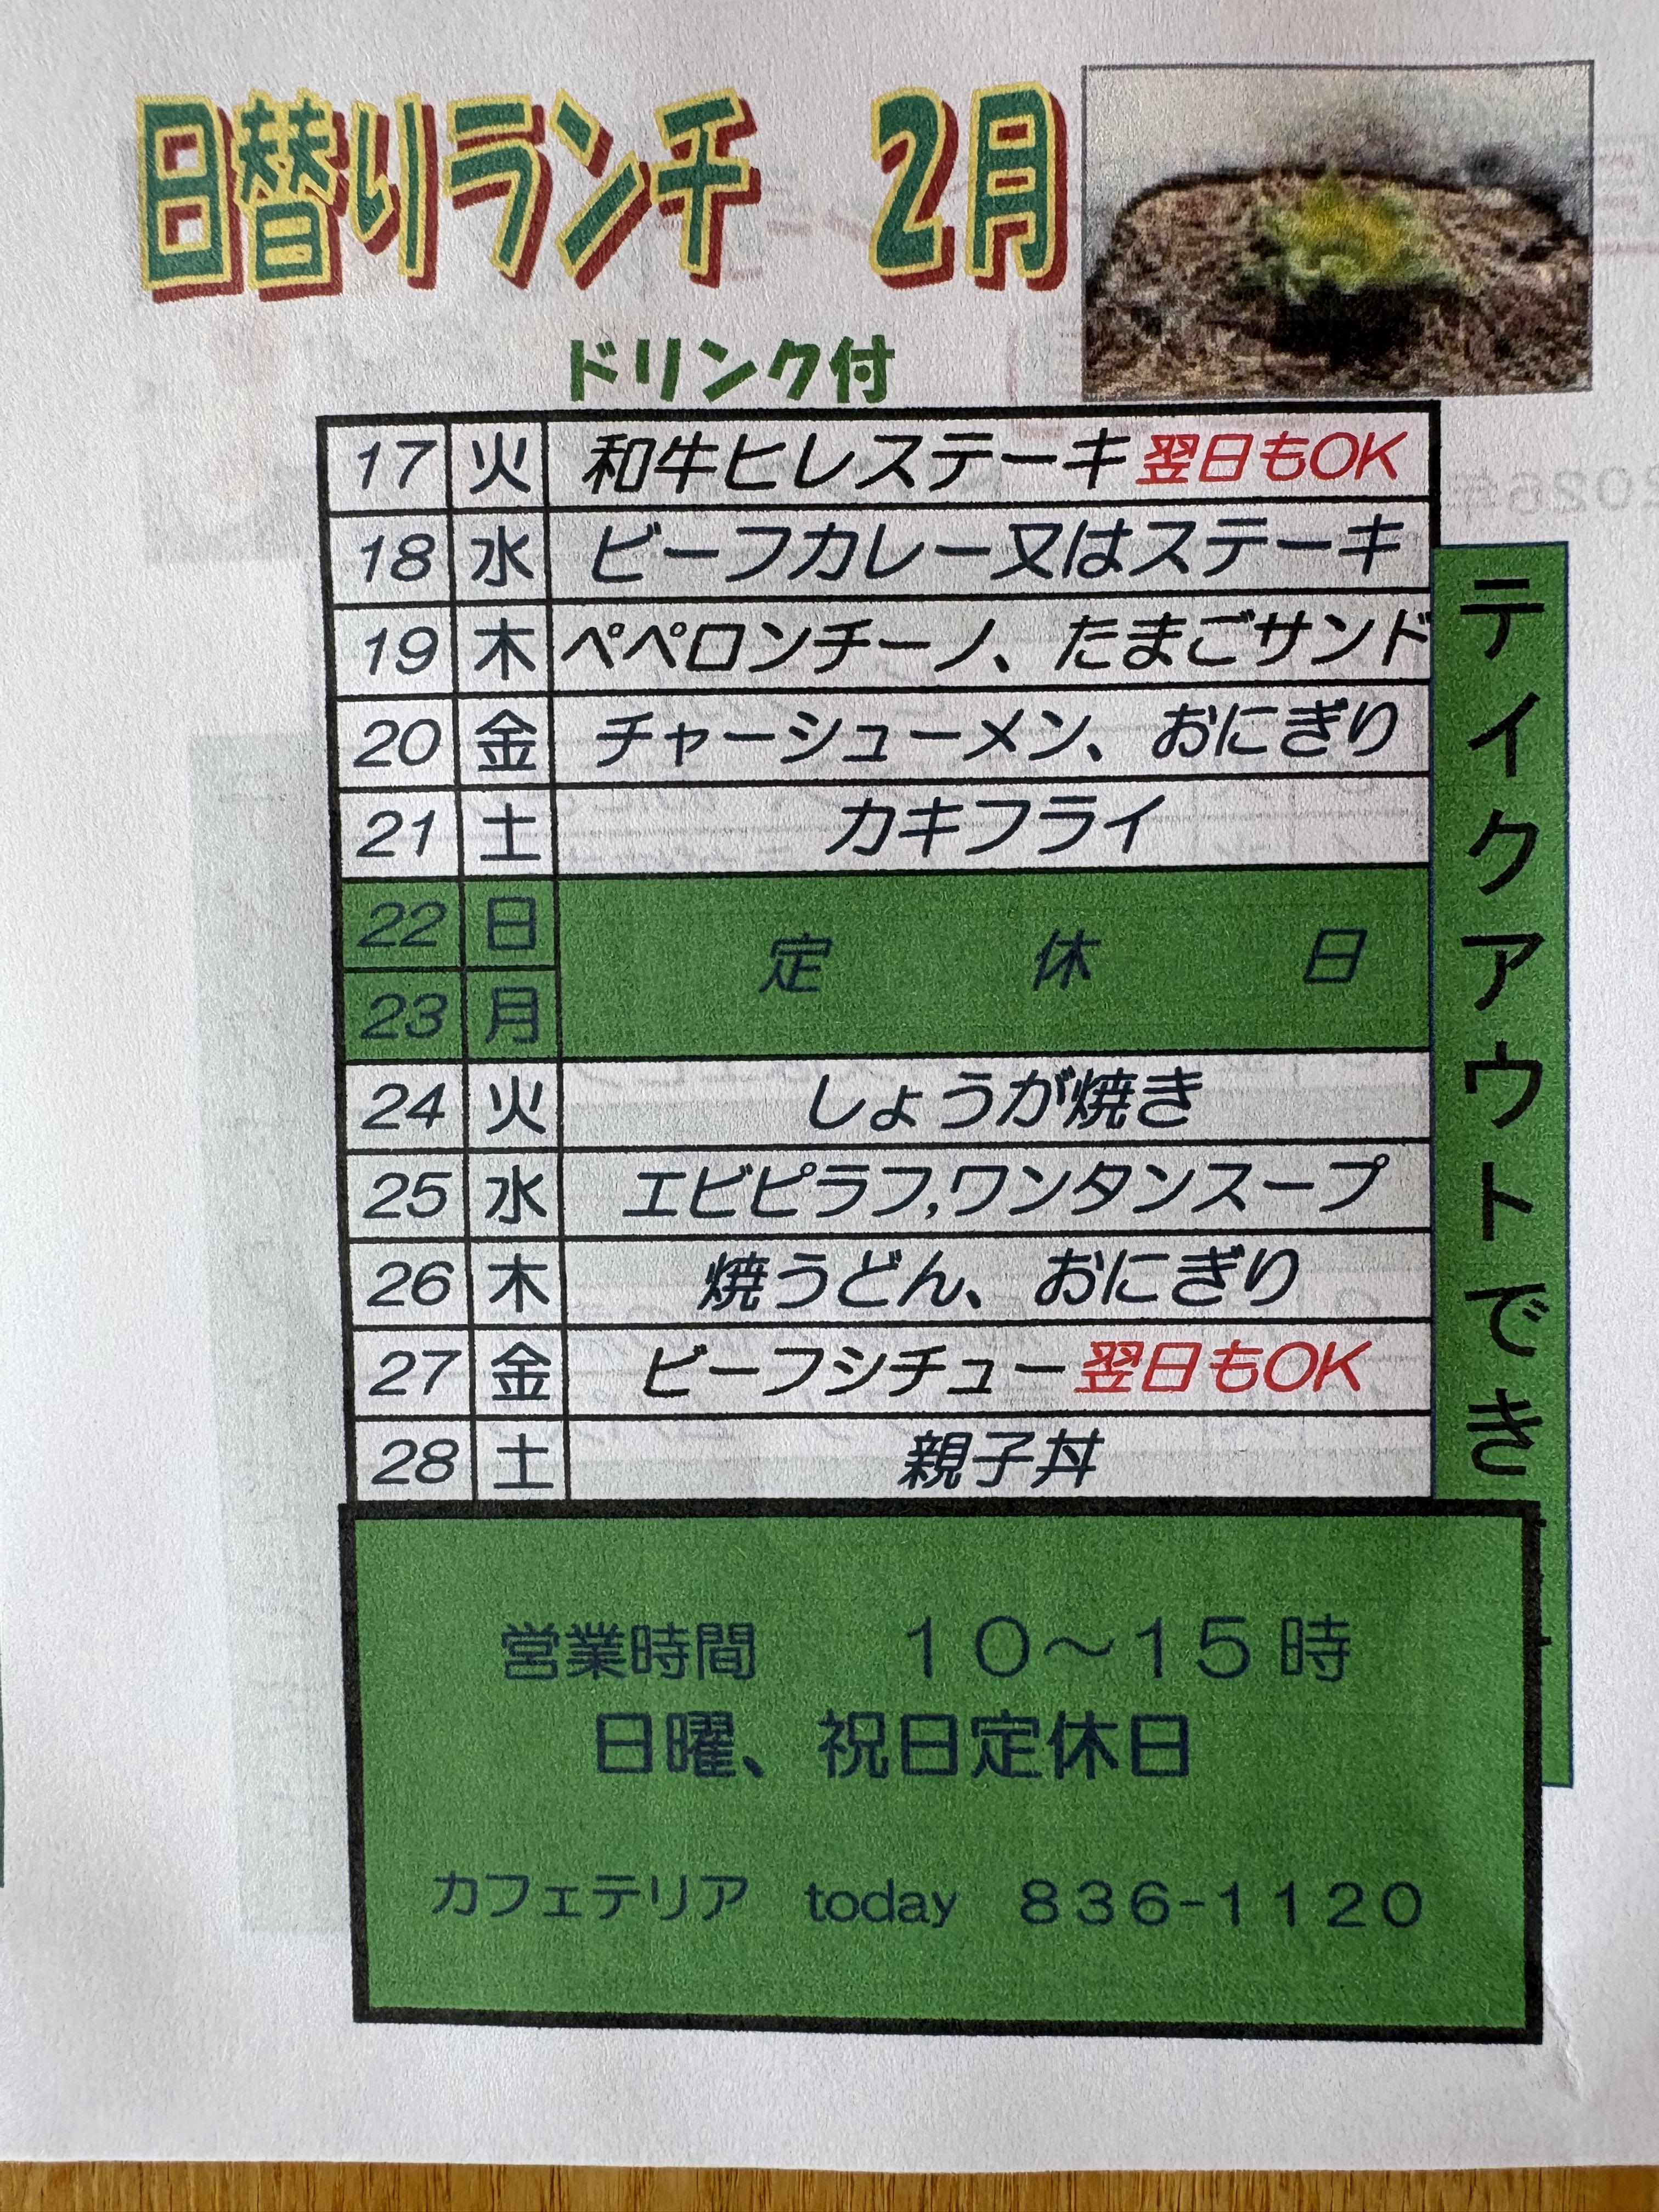 日替りランチ　2月
ドリンク付
17 火 和牛ヒレステーキ 翌日もOK
18 水 ビーフカレー又はステーキ
19 木 ペペロンチーノ、たまごサンド
20 金 チャーシューメン、おにぎり
21 土 カキフライ
22 日 定休日
23 月
24 火 しょうが焼き
25 水 エビピラフ,ワンタンスープ
26 木 焼うどん、おにぎり
27 金 ビーフシチュー 翌日もOK
28 土 親子丼
テイクアウトでき
営業時間　１０～１５時
日曜、祝日定休日
カフェテリア　today　８３６-１１２０